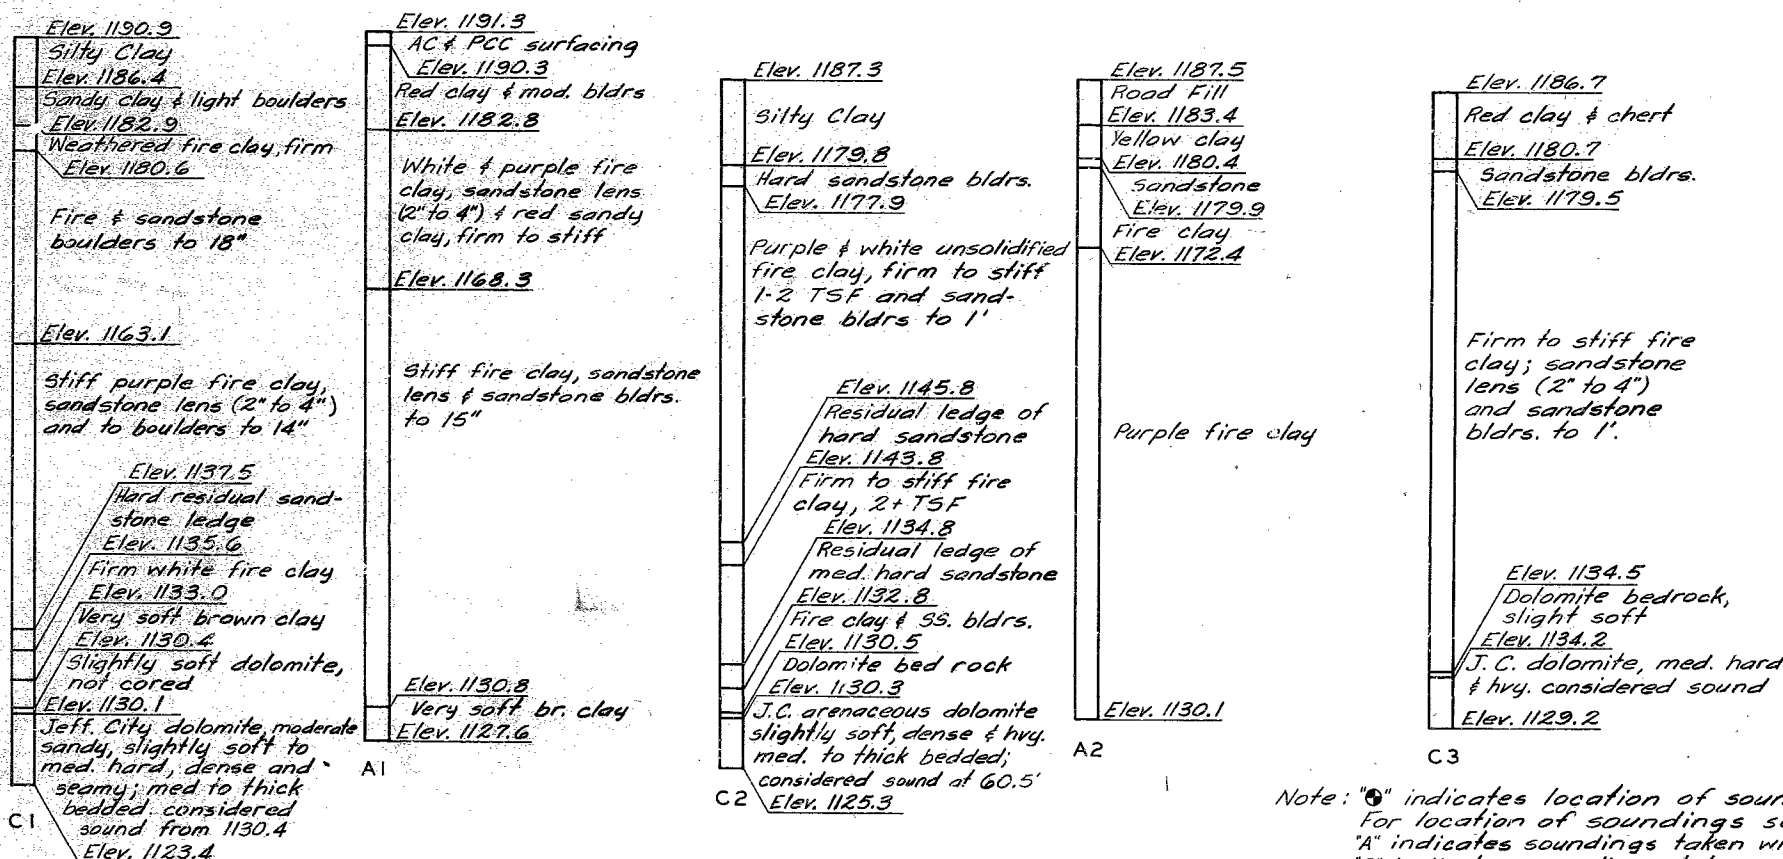 Elev. 1190.9
Silty Clay
Elev. 1186.4
Sandy clay & light boulders
Elev. 1182.9
Weathered fire clay, firm
Elev. 1180.6
Fire & sandstone
boulders to 18"
Elev. 1163.1
Stiff purple fire clay,
sandstone lens (2" to 4")
and to boulders to 14"
Elev. 1137.5
Hard residual sand-
stone ledge
Elev. 1135.6
Firm white fire clay
Elev. 1133.0
Very soft brown clay
Elev. 1130.4
Slightly soft dolomite,
not cored
Elev. 1130.1
Jeff. City dolomite, moderate
sandy, slightly soft to
med. hard, dense and
seamy; med to thick
bedded considered
sound from 1130.4
Elev. 1123.4
C1
Elev. 1191.3
AC & PCC surfacing
Elev. 1190.3
Red clay & mod. bldrs
Elev. 1182.8
White & purple fire
clay, sandstone lens
(2" to 4") & red sandy
clay, firm to stiff
Elev. 1168.3
Stiff fire clay, sandstone
lens & sandstone bldrs.
to 15"
Elev. 1130.8
Very soft br. clay
Elev. 1127.6
A1
Elev. 1187.3
Silty Clay
Elev. 1179.8
Hard sandstone bldrs.
Elev. 1177.9
Purple & white unsolidified
fire clay, firm to stiff
1-2 TSF and sand-
stone bldrs to 1'
Elev. 1145.8
Residual ledge of
hard sandstone
Elev. 1143.8
Firm to stiff fire
clay, 2+ TSF
Elev. 1134.8
Residual ledge of
med. hard sandstone
Elev. 1132.8
Fire clay & SS. bldrs.
Elev. 1130.5
Dolomite bed rock
Elev. 1130.3
J.C. arenaceous dolomite
slightly soft, dense & hvy.
med. to thick bedded;
considered sound at 60.5'
Elev. 1125.3
C2
Elev. 1187.5
Road Fill
Elev. 1183.4
Yellow clay
Elev. 1180.4
Sandstone
Elev. 1179.9
Fire clay
Elev. 1172.4
Purple fire clay
Elev. 1130.1
A2
Elev. 1186.7
Red clay & chert
Elev. 1180.7
Sandstone bldrs.
Elev. 1179.5
Firm to stiff fire
clay; sandstone
lens (2" to 4")
and sandstone
bldrs. to 1'.
Elev. 1134.5
Dolomite bedrock,
slight soft
Elev. 1134.2
J.C. dolomite, med. hard
& hvy. considered sound
Elev. 1129.2
C3
Note: "" indicates location of
For location of soundings
"A" indicates soundings taken